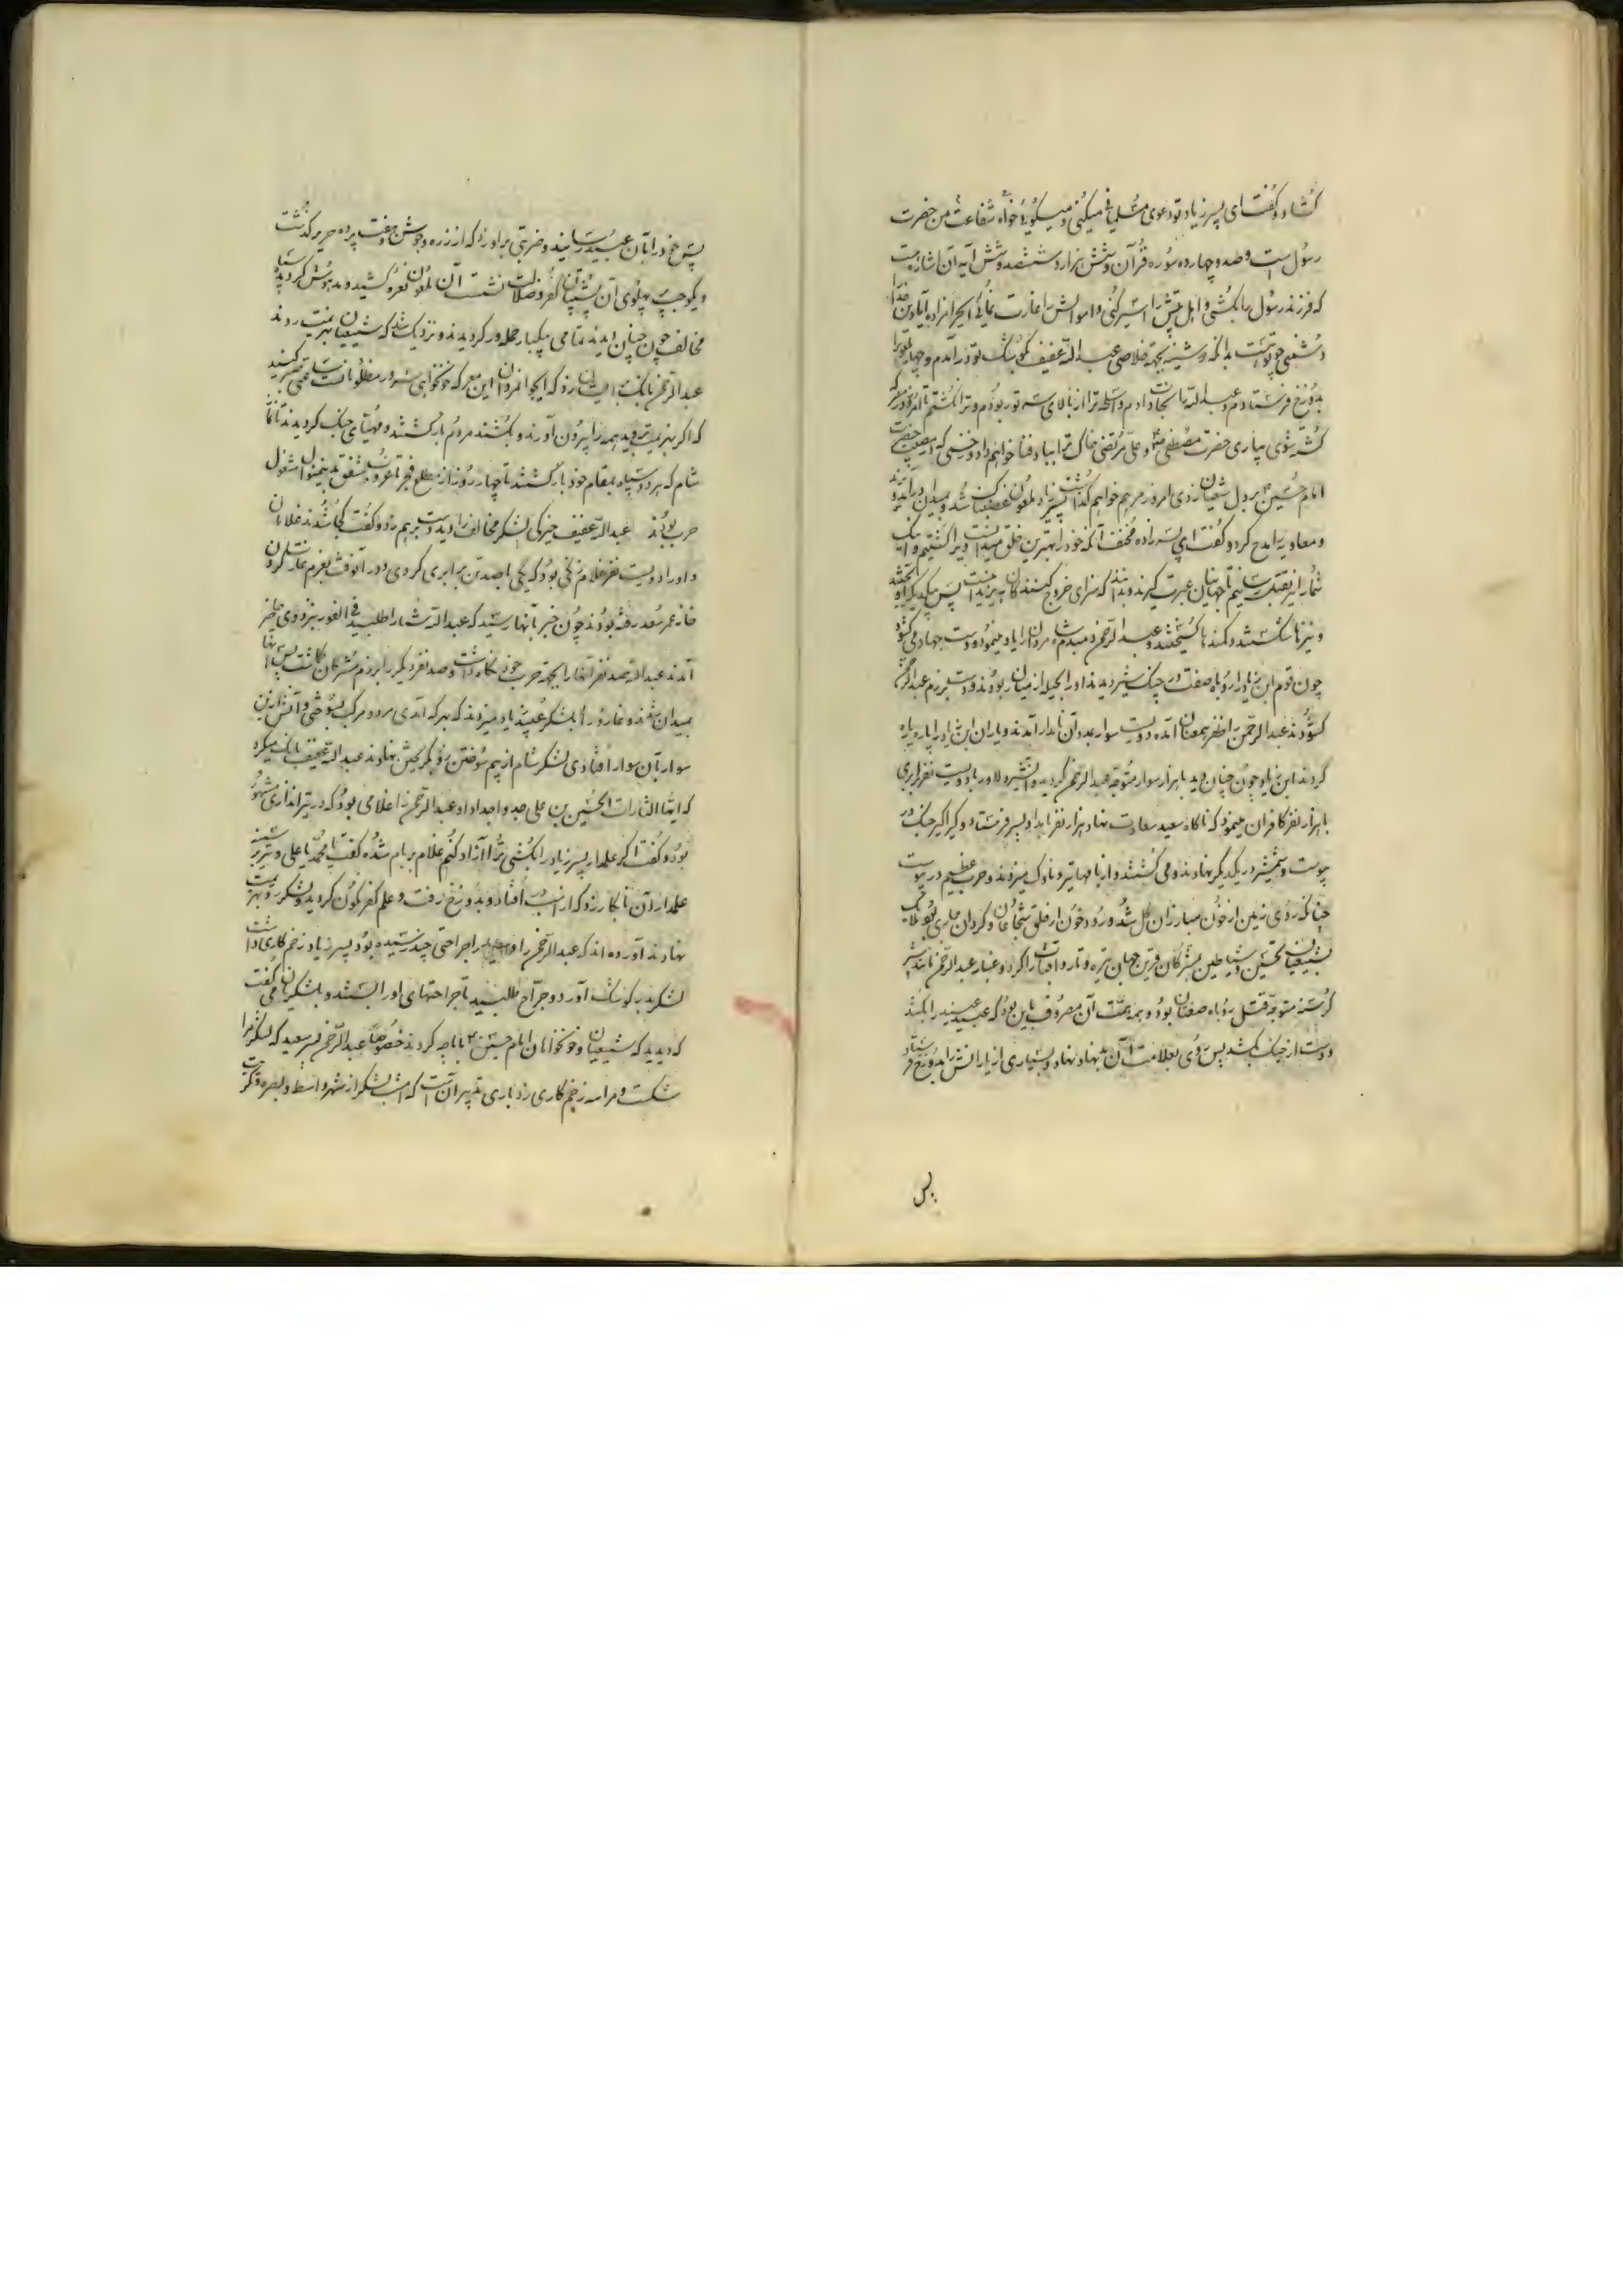 کشاد و گفت ای پسر زیاد تو دعوی مسلمانی میکنی و میگویی خواه شفاعت من حضرت
رسول است و صد و چهارده سوره قرآن و شش هزار و ششصد و شش آیه آن
که فرزند رسول را بکشی و اهل بیتش را اسیر کنی و اموالش را غارت نمائی ای حرامزاده
دشمنی چو تو بدانکه دوشینه بجهة خلاصی عبد الله عفیف در آدم و چهار
بدوزخ فرستادم و عبد الله را نجات دادم و اسلحه ترا از بالای سر تو ربودم و ترا نکشتم تا امروز در معرکه
کشته شوی بیاری حضرت مصطفی و علی مرتضی خاک ترا بباد فنا خواهم داد و زخمی که
امام حسین بر دل شیعیان زدی امروز مرهم خواهم گذاشت پسر زیاد ملعون غضبناک شد و بمیدان درآمد
و معاویه را مدح کرد و گفت ای آنکه خود را بهترین خلق میدانست ویرا کشتیم و اینک
شما را نیز بقتل رسانیم تا جهانیان عبرت گیرند و بدانند که سزای خروج کنندگان به یزید اینست پس
و نیزها شکسته شد و کمندها گسیخته شد و عبد الرحمن مردان را یاد مینمود و دست بجهاد می گشود
چون قوم ابن زیاد روباه صفت در چنگ شیر دیدند او را بحیله از میان ربودند و دست برزم عبد الرحمن
گشودند عبد الرحمن را ظفر آمده دویست سوار بمدد آن نامدار آمدند و یاران ابن زیاد را پاره پاره
کردند ابن زیاد چون چنان دید با هزار سوار متوجه عبد الرحمن گردید و آن شیر دلاور با دویست نفر برابری
با هزار نفر کافران مینمود که ناگاه سعید سعادت نهاد هزار نفر بامداد پسر فرستاد و گیراگیر جنگ در
پیوست و شمشیر در یکدیگر نهادند و می کشتند و از بامها تیر و ناوک میزدند و حرب عظیم در پیوست
چنانکه روی زمین از خون مبارزان گل شد و رود خون از حلق شجاعان و گردان جاری بود ملایک
بشیعیان تحسین و شیاطین بمشرکان قرین جهان تیره و تار و آفتاب را گرد و غبار عبد الرحمن مانند شیر
گرسنه متوجه قتل روباه صفتان بود و همه همت آن مصروف باین بود که عبید پلید را بکشد
و دست از جنگ بکشد پس روی بعلامت آن بدنهاد نهاد و بسیاری از یارانش را بدوزخ فرستاد
پس
پس خود را بآن عبید رسانید و ضربتی بر او زد که از زره و جوشن و هفت پرده حریر گذشت
و یکوجب پهلوی آن پشتیبان کفر و ضلالت نشست آن ملعون نعره کشید و مدهوش گردید سپاه
مخالف چون چنان دیدند تمامی بیکبار حمله ور گردیدند و نزدیک شد که شیعیان بهزیمت روند
عبد الرحمن بانگ بر ایشان زد که ایجوانمردان این معرکه خونخواهی سرور مظلومانست ساعتی صبر کنید
که اگر بهزیمت روید همه را بیرون آورند و بکشند مردم بازگشتند و مهیای جنگ گردیدند تا نماز
شام که هر دو سپاه بمقام خود بازگشتند تا چهار روز از مطلع فجر تا غروب شفق بدینمنوال مشغول
حرب بودند عبد الله عفیف لشکر مخالف را دید دست برهم زد و گفت کجا شدند غلامان
و او را دویست نفر غلام زنگی بود که یکی با صد تن برابری کردی و در آنوقت بعزم غارت کردن
خانه عمر سعد رفته بودند چون خبر بآنها رسید که عبد الله شما را طلبید فی الفور بنزد وی حاضر
آمدند عبد الله صد نفر آنها را بجهة حرب خود نگاه داشت و صد نفر دیگر را برزم مشرکان گماشت پس آنها
بمیدان شدند و قاروره را بلشکر عبید زیاد میزدند که بهر که آمدی مرد و مرکب بسوختی و آتش از این
سوار بآن سوار افتادی لشکر شام از بیم سوختن رو بگریختن نهادند عبد الله عفیف بانگ میکرد
که ایها الثارات الحسین بن علی جد و اجداد او عبد الرحمن را غلامی بود که در تیراندازی مشهور
بود و گفت اگر علمدار پسر زیاد را بکشی ترا آزاد کنم غلام بر بام شده گفت یا محمد یا علی و تیر بر سینه
علمدار آن نابکار زد که از اسب در افتاد و بدوزخ رفت و علم کفر نگون گردید و لشکر رو بهزیمت
نهادند آورده اند که عبد الرحمن را جراحتی چند رسیده بود پسر زیاد زخم کاری داشت
لشکر بدر کوشک آورد و جراح طلبید تا جراحتهای او را بستند و بلشکریان می گفت
که دیدید که شیعیان و خونخواهان امام حسین با ما چه کردند خصوصا عبد الرحمن پسر سعید که لشکر مرا
شکست و مرا سه زخم کاری زد باری تدبیر آنست که امشب لشکر از شهر واسط و بصره و